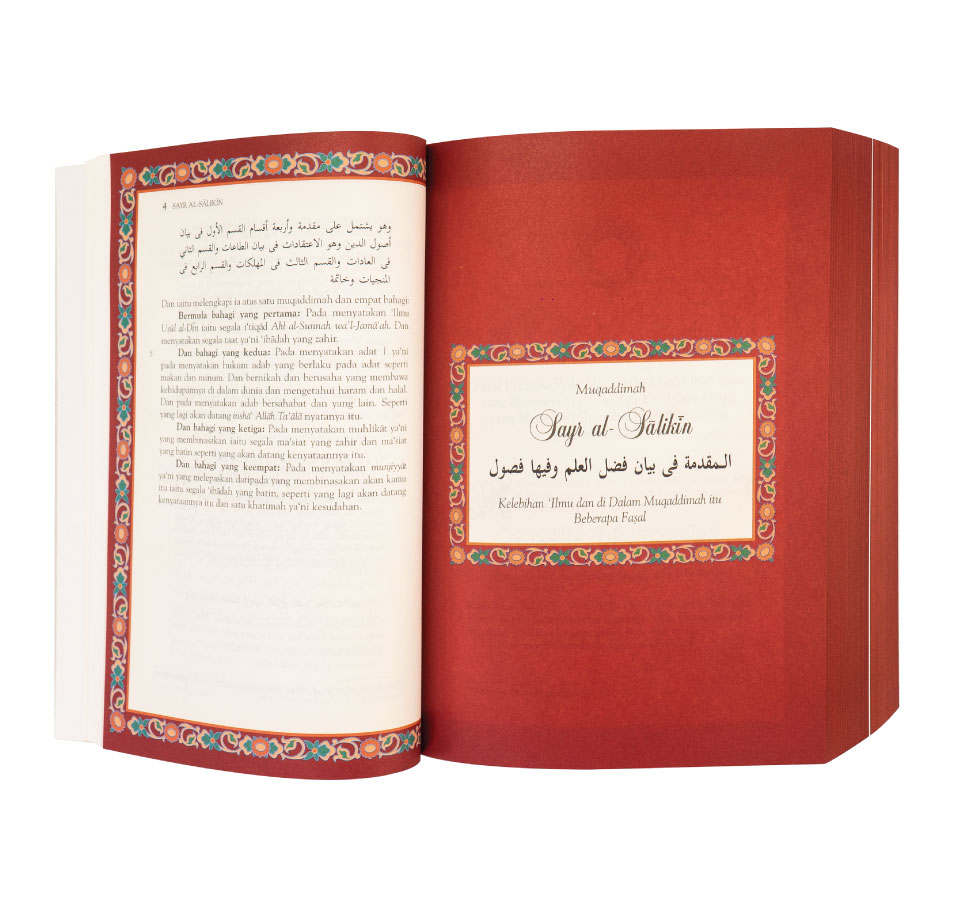 4 SAYR AL-SĀLIKĪN
وهو يشتمل على مقدمة وأربعة أقسام القسم الأول فى بيان
أصول الدين وهو الاعتقادات فى بيان الطاعات والقسم الثاني
فى العادات والقسم الثالث فى المهلكات والقسم الرابع فى
المنجيات وخاتمة
Dan iaitu melengkapi ia atas satu muqaddimah dan empat bahagi:
Bermula bahagi yang pertama: Pada menyatakan ‘Ilmu
Uṣūl al-Dīn iaitu segala i‘tiqād Ahl al-Sunnah wa’l-Jamā‘ah. Dan
menyatakan segala taat ya‘ni ‘ibādah yang zahir.
5 Dan bahagi yang kedua: Pada menyatakan adat 1 ya‘ni
pada menyatakan hukum adab yang berlaku pada adat seperti
makan dan minum. Dan bernikah dan berusaha yang membawa
kehidupannya di dalam dunia dan mengetahui haram dan halal.
Dan pada menyatakan adab bersahabat dan yang lain. Seperti
yang lagi akan datang inshā’ Allāh Ta‘ālā nyatanya itu.
Dan bahagi yang ketiga: Pada menyatakan muhlikāt ya‘ni
yang membinasakan iaitu segala ma‘siat yang zahir dan ma‘siat
yang batin seperti yang akan datang kenyataannya itu.
Dan bahagi yang keempat: Pada menyatakan munjiyāt
ya‘ni yang melepaskan daripada yang membinasakan akan kamu
itu iaitu segala ‘ibādah yang batin, seperti yang lagi akan datang
kenyataannya itu dan satu khatimah ya‘ni kesudahan.
Muqaddimah
Sayr al-Sālikīn
المقدمة فى بيان فضل العلم وفيها فصول
Kelebihan ‘Ilmu dan di Dalam Muqaddimah itu
Beberapa Faṣal